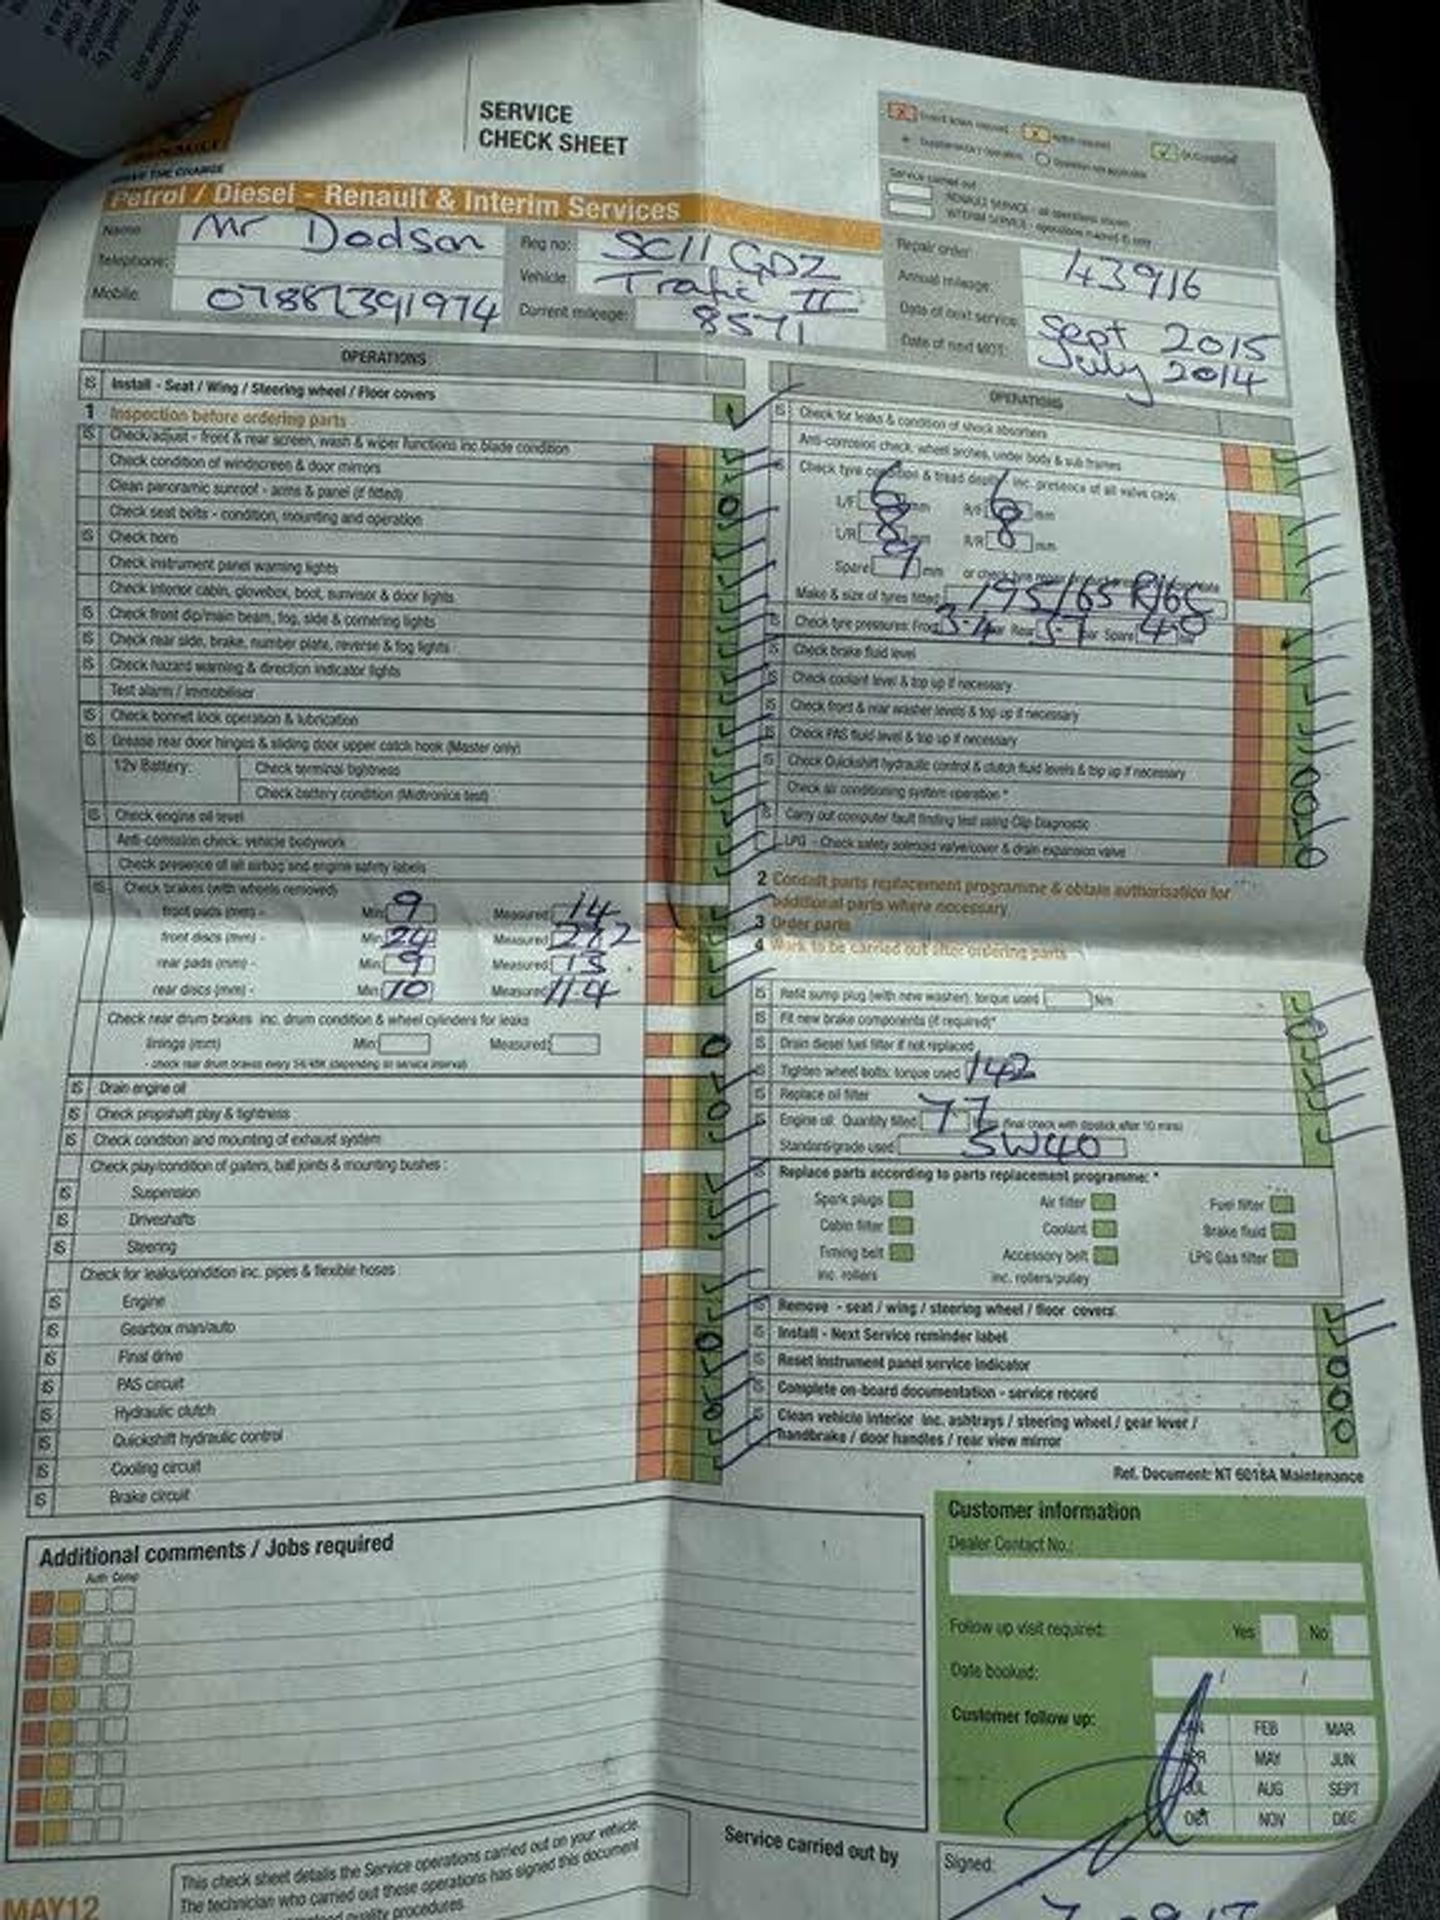 SERVICE
CHECK SHEET
RENAULT
DRIVE THE CHANGE
Petrol / Diesel - Renault & Interim Services
Service carried out
RENAULT SERVICE - all operations shown
INTERIM SERVICE - operations marked IS only
Name: Mr Dodson
Telephone:
Mobile:
Reg no: SC11 GDZ
Vehicle: Trafic II
Current mileage: 8571
Repair order: 143916
Annual mileage:
Date of next service: Sept 2015
Date of next MOT: July 2014
OPERATIONS
IS Install - Seat / Wing / Steering wheel / Floor covers
1 Inspection before ordering parts
IS Check/adjust - front & rear screen, wash & wiper functions inc blade condition
Check condition of windscreen & door mirrors
Clean panoramic sunroof - arms & panel (if fitted)
Check seat belts - condition, mounting and operation
IS Check horn
Check instrument panel warning lights
Check interior cabin, glovebox, boot, sunvisor & door lights
IS Check front dip/main beam, fog, side & cornering lights
IS Check rear side, brake, number plate, reverse & fog lights
IS Check hazard warning & direction indicator lights
Test alarm / immobiliser
IS Check bonnet lock operation & lubrication
IS Grease rear door hinges & sliding door upper catch hook (Master only)
12v Battery: Check terminal tightness
Check battery condition (Midtronics test)
IS Check engine oil level
Anti-corrosion check: vehicle bodywork
Check presence of all airbag and engine safety labels
IS Check brakes (with wheels removed)
front pads (mm) - Min: 9 Measured: 14
front discs (mm) - Min: 24 Measured: 27.2
rear pads (mm) - Min: 9 Measured: 13
rear discs (mm) - Min: 10 Measured: 11.4
Check rear drum brakes inc. drum condition & wheel cylinders for leaks
linings (mm) Min: Measured:
IS Drain engine oil
IS Check propshaft play & tightness
IS Check condition and mounting of exhaust system
Check play/condition of gaiters, ball joints & mounting bushes:
IS Suspension
IS Driveshafts
IS Steering
Check for leaks/condition inc. pipes & flexible hoses
IS Engine
IS Gearbox man/auto
IS Final drive
IS PAS circuit
IS Hydraulic clutch
IS Quickshift hydraulic control
IS Cooling circuit
IS Brake circuit
OPERATIONS
IS Check for leaks & condition of shock absorbers
Anti-corrosion check, wheel arches, under body & sub frames
IS Check tyre condition & tread depth, inc. presence of all valve caps:
L/F 6 mm R/F 6 mm
L/R 8 mm R/R 8 mm
Spare 9 mm
Make & size of tyres fitted 195/65 R16C
IS Check tyre pressures: Front 3.4 bar Rear 3.7 bar Spare 4.0
IS Check brake fluid level
IS Check coolant level & top up if necessary
IS Check front & rear washer levels & top up if necessary
IS Check PAS fluid level & top up if necessary
IS Check Quickshift hydraulic control & clutch fluid levels & top up if necessary
Check air conditioning system operation *
IS Carry out computer fault finding test using Clip Diagnostic
LPG - Check safety solenoid valve/cover & drain expansion valve
2 Consult parts replacement programme & obtain authorisation for
additional parts where necessary
3 Order parts
4 Work to be carried out after ordering parts
IS Refit sump plug (with new washer), torque used Nm
IS Fit new brake components (if required)*
IS Drain diesel fuel filter if not replaced
IS Tighten wheel bolts: torque used 142
IS Replace oil filter
IS Engine oil: Quantity filled 7.7 (final check with dipstick after 10 mins)
Standard/grade used 5W40
IS Replace parts according to parts replacement programme: *
Spark plugs Air filter Fuel filter
Cabin filter Coolant Brake fluid
Timing belt Accessory belt LPG Gas filter
inc. rollers inc. rollers/pulley
IS Remove - seat / wing / steering wheel / floor covers
IS Install - Next Service reminder label
IS Reset instrument panel service indicator
IS Complete on-board documentation - service record
IS Clean vehicle interior inc. ashtrays / steering wheel / gear lever /
handbrake / door handles / rear view mirror
Ref. Document: NT 6018A Maintenance
Additional comments / Jobs required
Auth Comp
Customer information
Dealer Contact No.:
Follow up visit required: Yes No
Date booked: / /
Customer follow up:
JAN FEB MAR
APR MAY JUN
JUL AUG SEPT
OCT NOV DEC
Service carried out by
Signed:
This check sheet details the Service operations carried out on your vehicle.
The technician who carried out these operations has signed this document
quality procedures.
MAY12